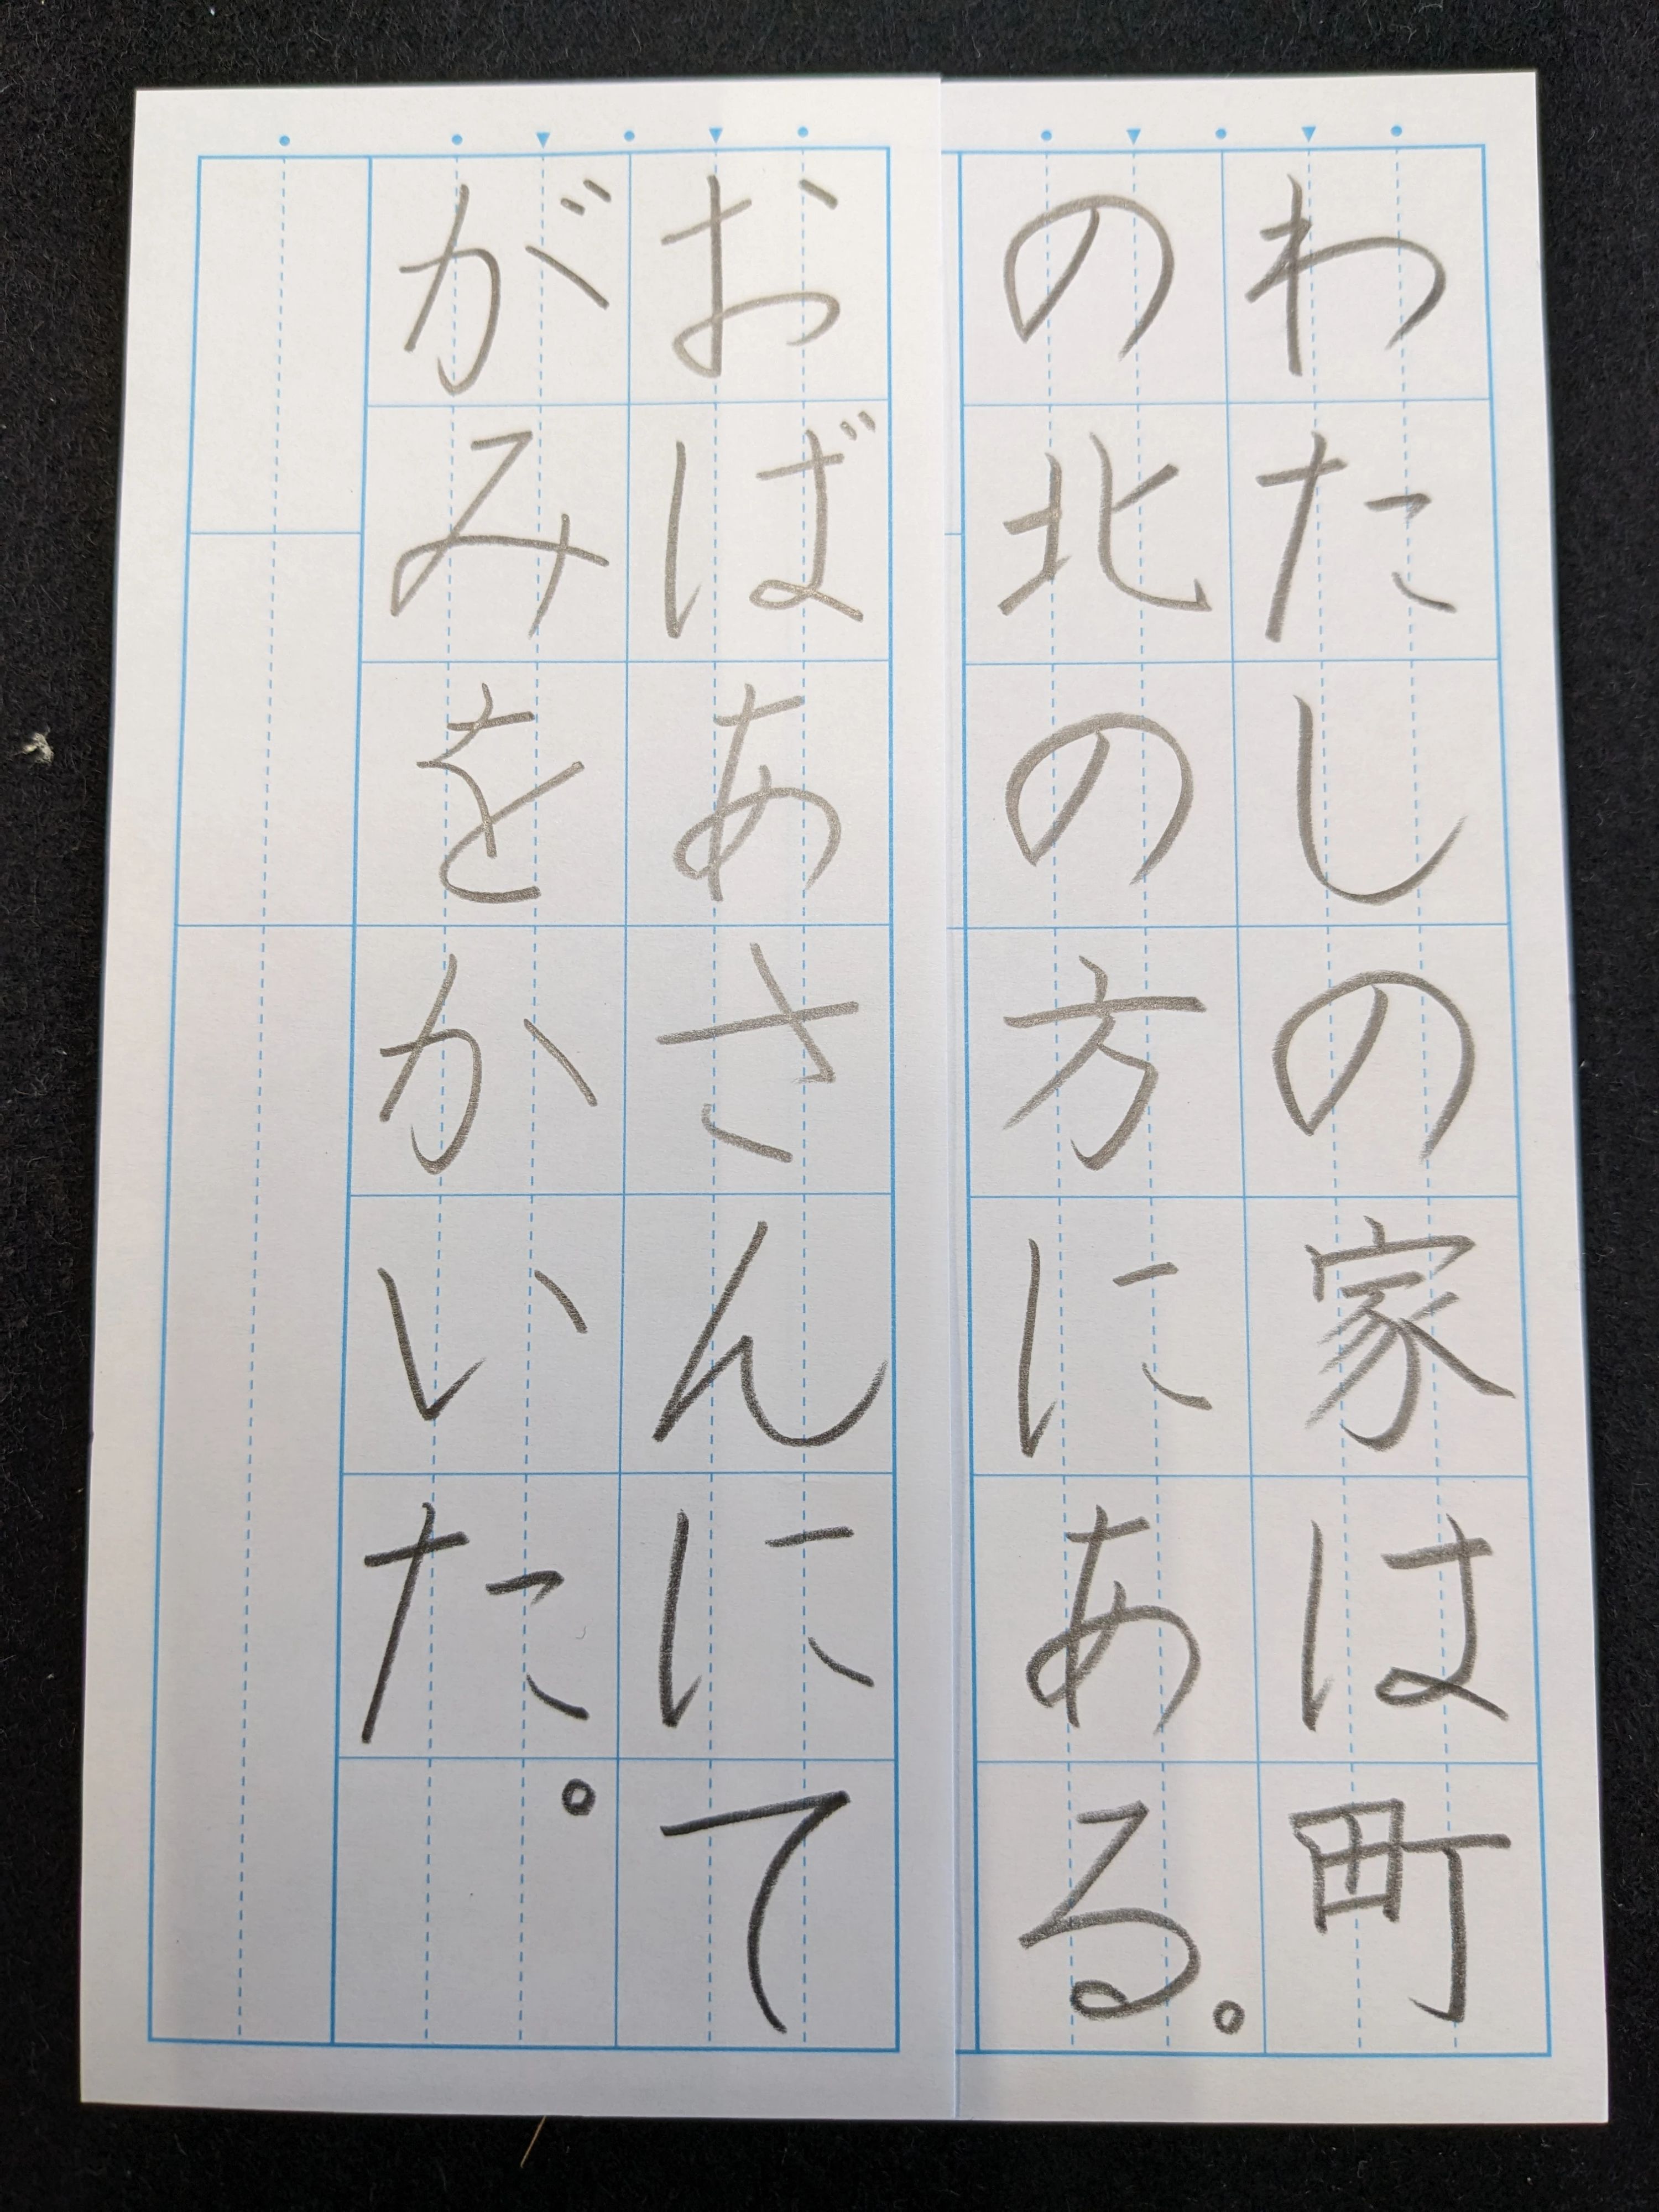 わたしの家は町
の北の方にある。
おばあさんにて
がみをかいた。